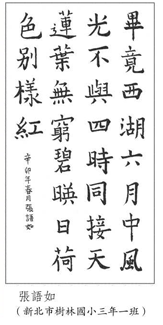 畢竟西湖六月中風
光不與四時同接天
蓮葉無窮碧暎日荷
色別樣紅
辛卯年春月張語如
張語如
（新北市樹林國小三年一班）